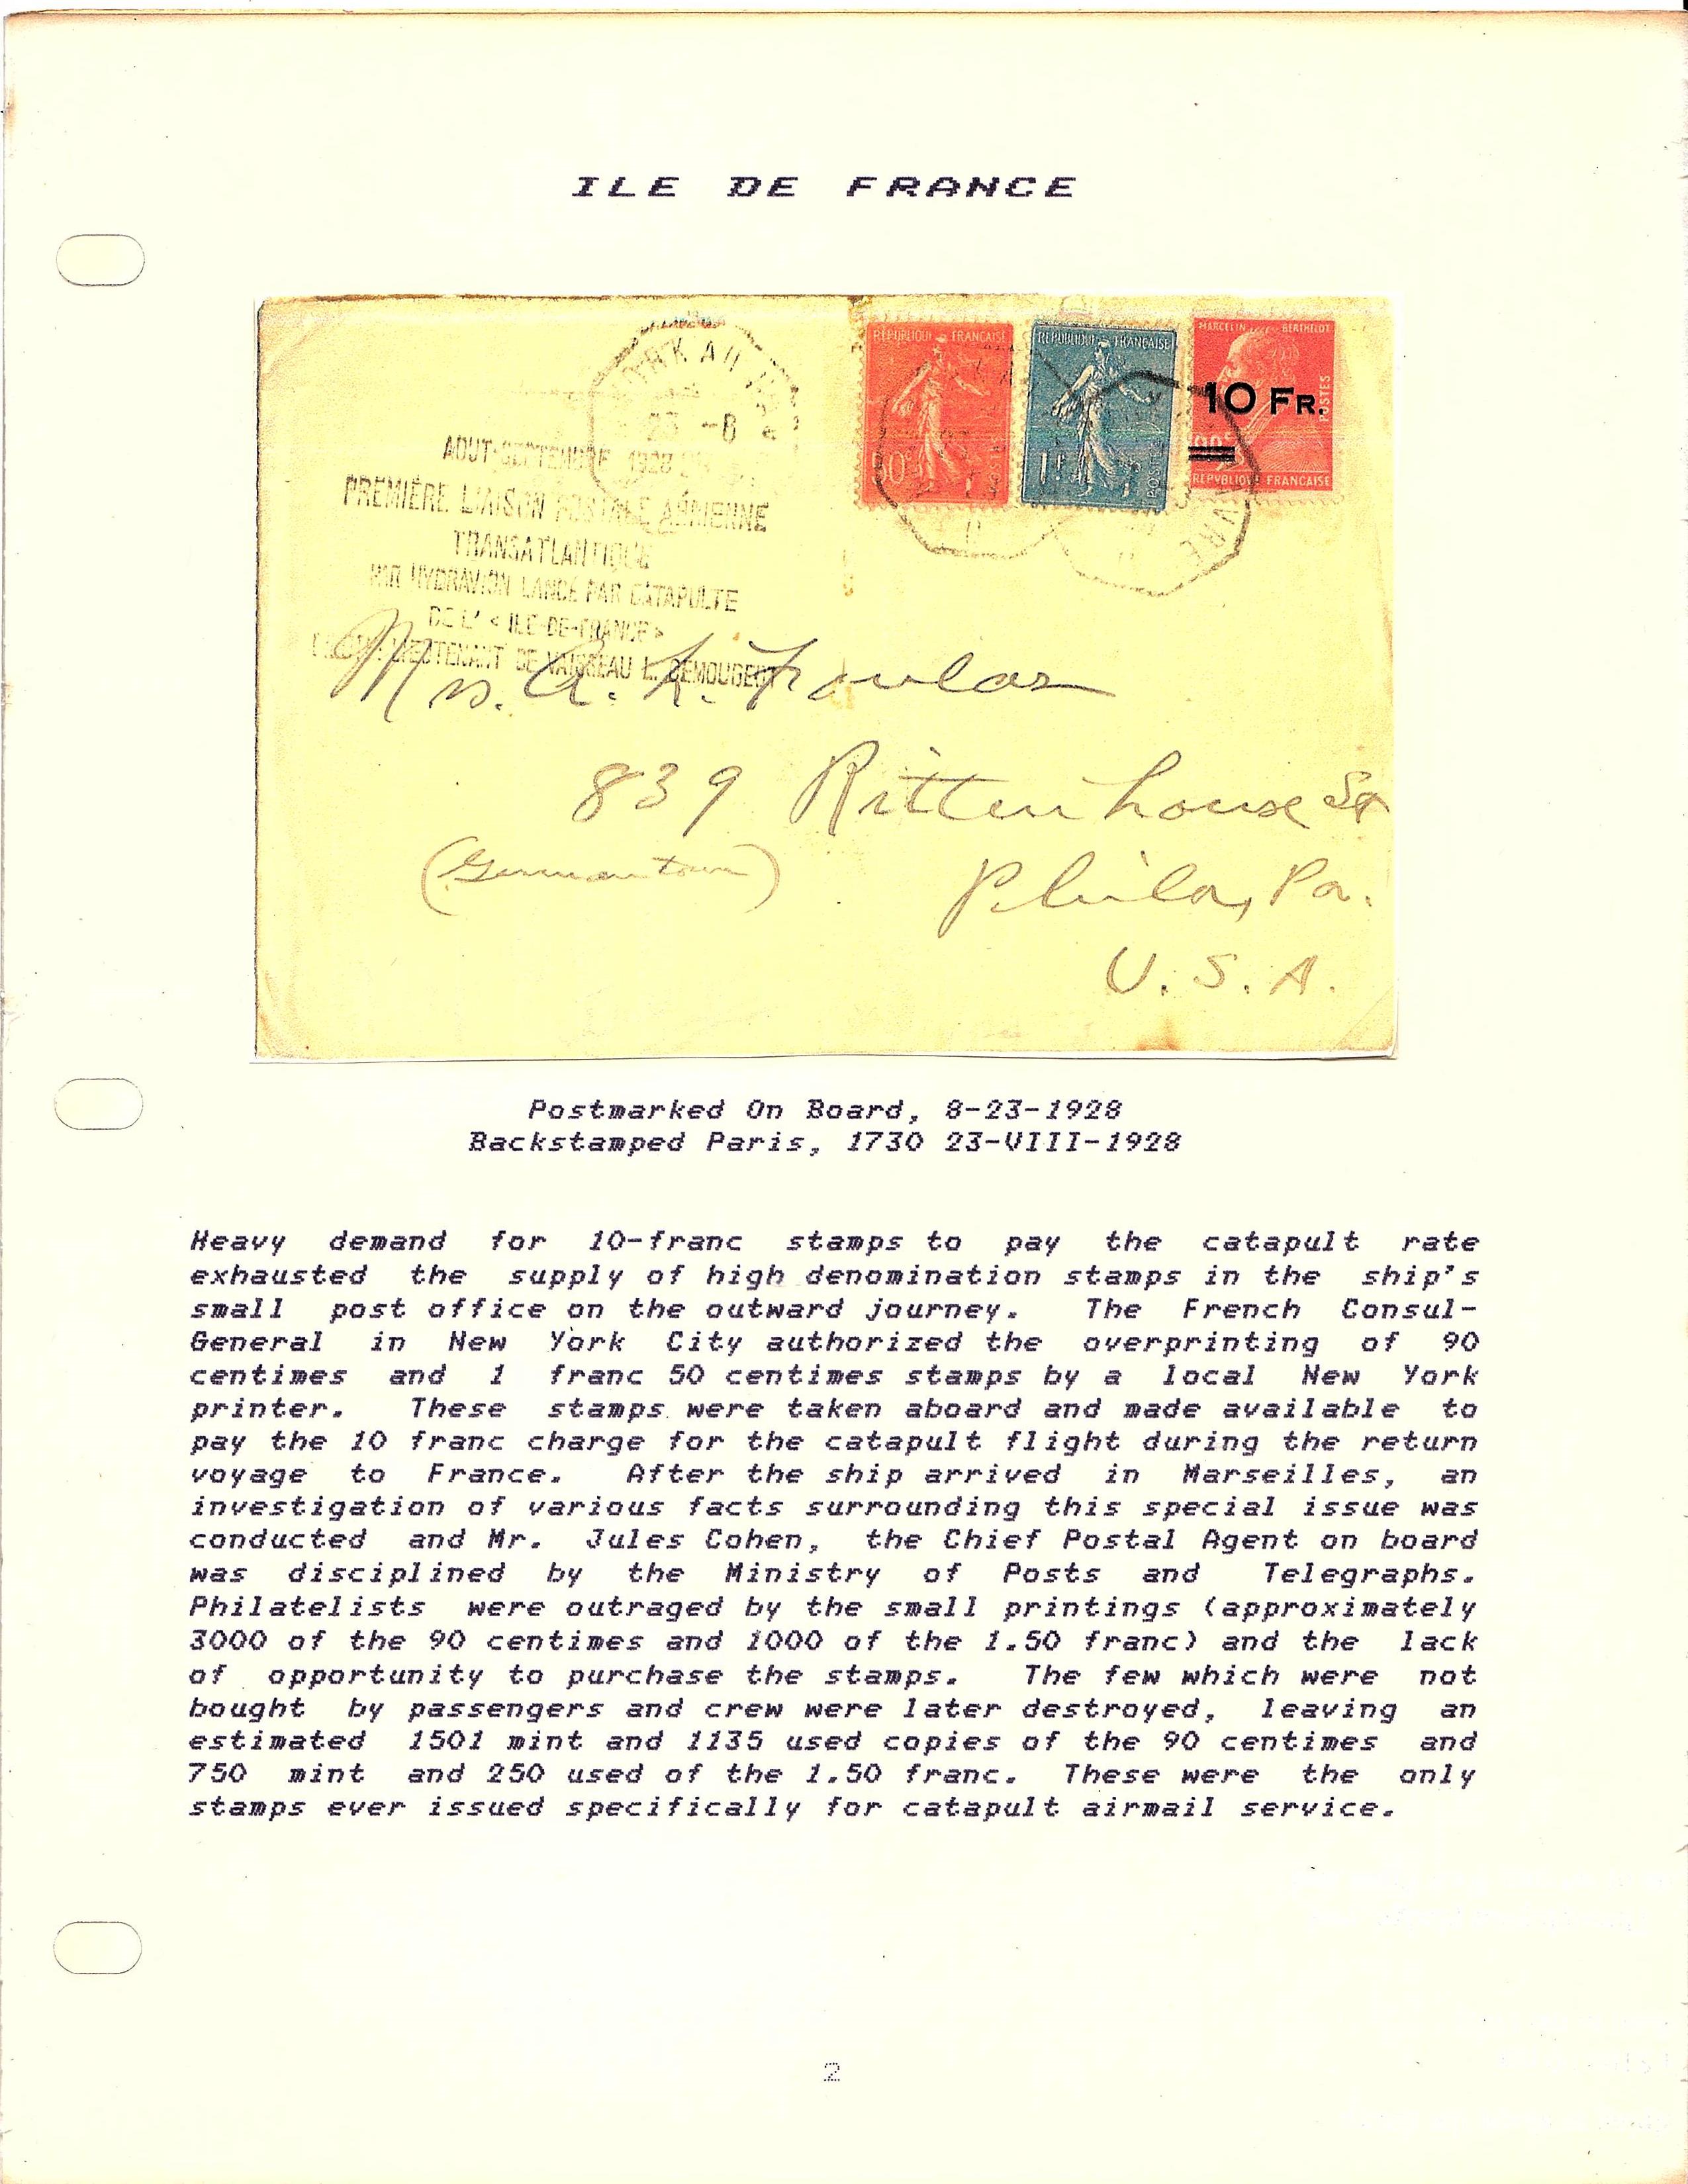 ILE DE FRANCE
REPUBLIQUE FRANCAISE
REPUBLIQUE FRANCAISE
MARCELIN BERTHELOT
10 FR.
POSTES
50c
1F
POSTES
90c
REPUBLIQUE FRANCAISE
23 -8
AOUT-SEPTEMBRE 1928
PREMIÈRE LIAISON POSTALE AÉRIENNE
TRANSATLANTIQUE
PAR HYDRAVION LANCÉ PAR CATAPULTE
DE L' < ILE-DE-FRANCE >
LIEUTENANT DE VAISSEAU L. DEMOUGEOT
Mrs. A. K.
839 Rittenhouse St
(Germantown)
Phila, Pa.
U.S.A.
Postmarked On Board, 8-23-1928
Backstamped Paris, 1730 23-VIII-1928
Heavy demand for 10-franc stamps to pay the catapult rate
exhausted the supply of high denomination stamps in the ship's
small post office on the outward journey. The French Consul-
General in New York City authorized the overprinting of 90
centimes and 1 franc 50 centimes stamps by a local New York
printer. These stamps were taken aboard and made available to
pay the 10 franc charge for the catapult flight during the return
voyage to France. After the ship arrived in Marseilles, an
investigation of various facts surrounding this special issue was
conducted and Mr. Jules Cohen, the Chief Postal Agent on board
was disciplined by the Ministry of Posts and Telegraphs.
Philatelists were outraged by the small printings (approximately
3000 of the 90 centimes and 1000 of the 1.50 franc) and the lack
of opportunity to purchase the stamps. The few which were not
bought by passengers and crew were later destroyed, leaving an
estimated 1501 mint and 1135 used copies of the 90 centimes and
750 mint and 250 used of the 1.50 franc. These were the only
stamps ever issued specifically for catapult airmail service.
2